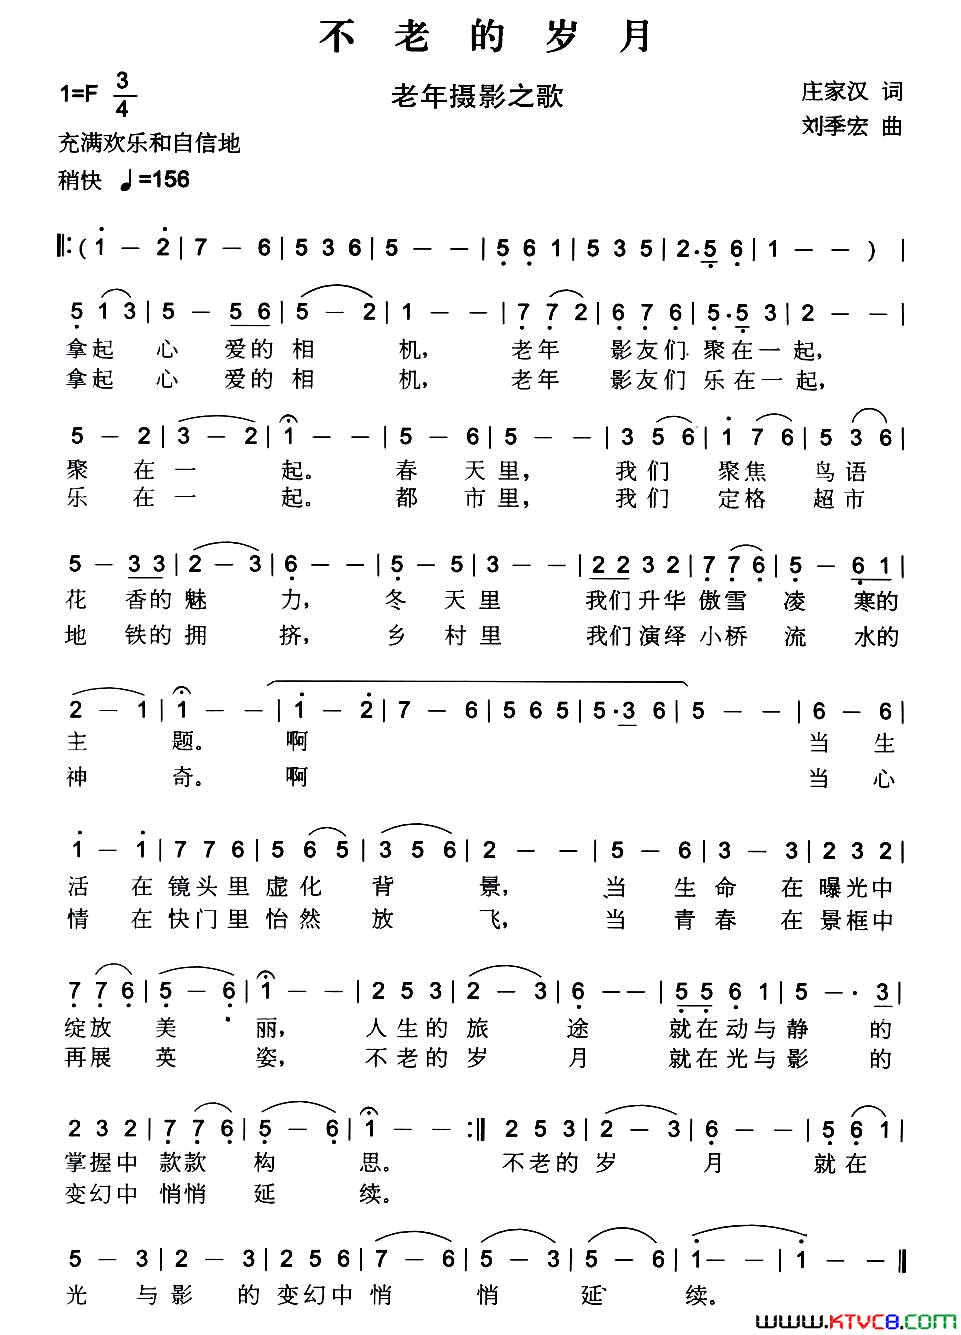 不老的岁月
1=F 3/4
老年摄影之歌
庄家汉 词
刘季宏 曲
充满欢乐和自信地
稍快 ♩=156
‖:( 1 - 2 | 7 - 6 | 5 3 6 | 5 - - | 5 6 1 | 5 3 5 | 2·5 6 | 1 - - ) |
5 1 3 | 5 - 5 6 | 5 - 2 | 1 - - | 7 7 2 | 6 7 6 | 5·5 3 | 2 - - |
拿起 心 爱的 相 机， 老年 影友们 聚在一起，
拿起 心 爱的 相 机， 老年 影友们 乐在一起，
5 - 2 | 3 - 2 | 1 - - | 5 - 6 | 5 - - | 3 5 6 | 1 7 6 | 5 3 6 |
聚 在 一 起。 春 天 里， 我们 聚焦 鸟语
乐 在 一 起。 都 市 里， 我们 定格 超市
5 - 3 3 | 2 - 3 | 6 - - | 5 - 5 | 3 - - | 2 2 3 2 | 7 7 6 | 5 - 6 1 |
花 香的 魅 力， 冬 天 里 我们升华 傲雪 凌 寒的
地 铁的 拥 挤， 乡 村 里 我们演绎 小桥 流 水的
2 - 1 | 1 - - | 1 - 2 | 7 - 6 | 5 6 5 | 5·3 6 | 5 - - | 6 - 6 |
主 题。 啊 当 生
神 奇。 啊 当 心
1 - 1 | 7 7 6 | 5 6 5 | 3 5 6 | 2 - - | 5 - 6 | 3 - 3 | 2 3 2 |
活 在 镜头里 虚化 背 景， 当 生 命 在 曝光中
情 在 快门里 怡然 放 飞， 当 青 春 在 景框中
7 7 6 | 5 - 6 | 1 - - | 2 5 3 | 2 - 3 | 6 - - | 5 5 6 1 | 5 - · 3 |
绽放 美 丽， 人生的 旅 途 就在动与静 的
再展 英 姿， 不老的 岁 月 就在光与影 的
2 3 2 | 7 7 6 | 5 - 6 | 1 - - :‖ 2 5 3 | 2 - 3 | 6 - - | 5 6 1 |
掌握中 款款 构 思。 不老的 岁 月 就在
变幻中 悄悄 延 续。
5 - 3 | 2 - 3 | 2 5 6 | 7 - 6 | 5 - 3 | 5 - 6 | 1 - - | 1 - - ‖
光 与 影 的 变幻中 悄 悄 延 续。
www.KTVC8.com